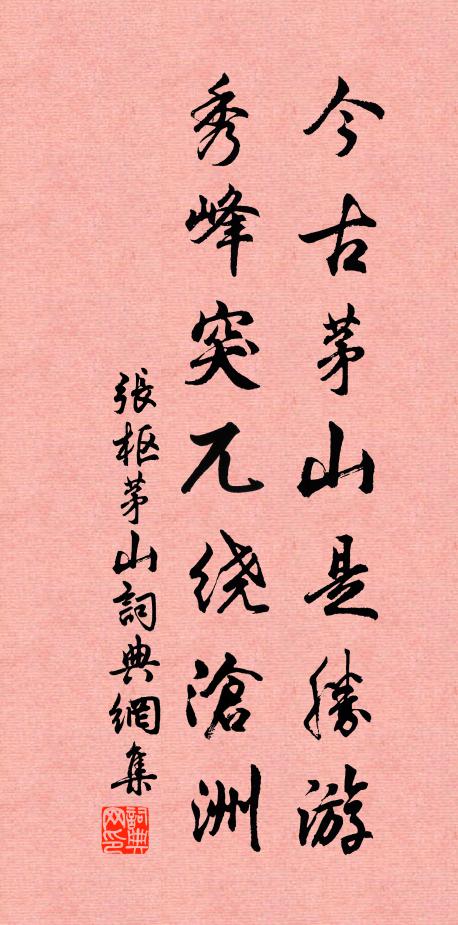 今古茅山是勝游
秀峰突兀绕滄洲
張枢茅山詞典網集
詞典网印